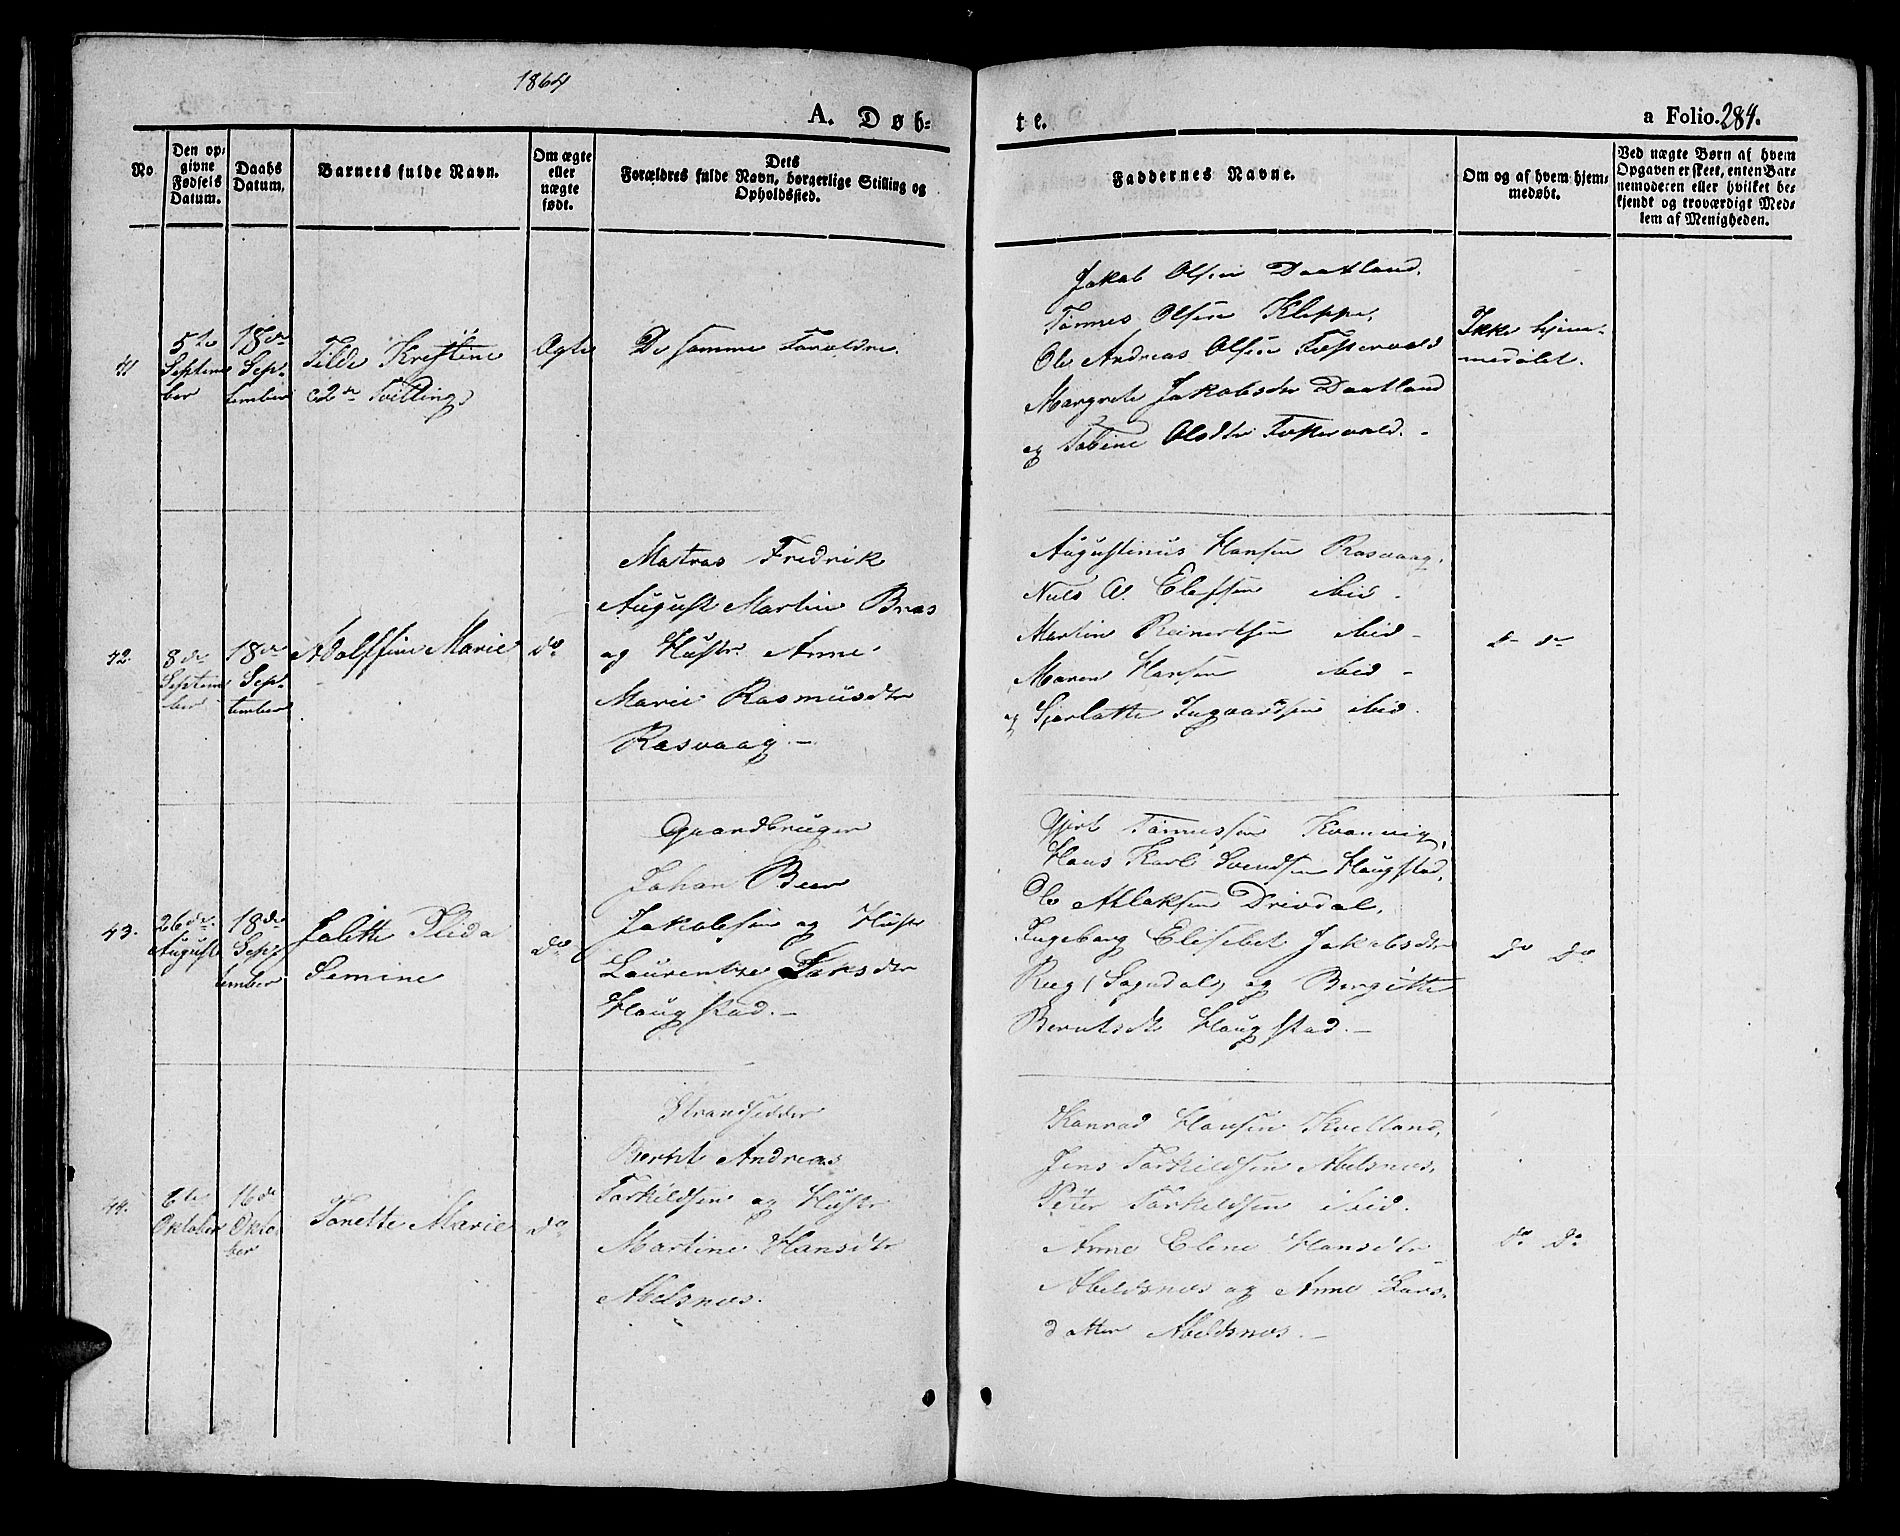 1864
A. Døb-
te.
a Folio. 284.
No.
Den op-
givne
Fødsels
Datum.
Daabs
Datum.
Barnets fulde Navn.
Om ægte
eller
uægte
født.
Dets
Forældres fulde Navn, borgerlige Stilling og
Opholdssted.
Faddernes Navne.
Om og af hvem hjem-
medøbt.
Ved uægte Børn af hvem
Opgaven er skeet, enten Bar-
nemoderen eller hvilket be-
kjendt og troværdigt Med-
lem af Menigheden.
41
5te
Septem
ber
18de
Sep-
tember
Tilde Kristine
2de Tvilling
Ægte
De samme Foreldre.
Jakob Olsen Daatland.
Tønnes Olsen Kleppe,
Ole Andreas Olsen Fosservold
Margrete Jakobsdtr Daatland
og Tobine Olsdtr Fosservold. -
Ikke hjem-
medøbt.
42.
8de
Septem
ber
18de
Sep-
tember
Adolffine Marie
do
Matros Fredrik
August Martin Bras
og Hustr. Anne
Marie Rasmusdtr
Rasvaag. -
Augustinus Hansen Rasvaag,
Nils A. Elefsen ibid -
Martin Reinertsen ibid -
Maren Hansen ibid -
og Sjarlotte Ingvardsen ibid.
do do
43.
26de
August
18de
Sep-
tember
Jalette Elida
Semine
do
Gaardbruger
Johan Beer
Jakobsen og Hustr
Laurentze Larsdtr
Haugstad. -
Gjert Tønnessen Kvanvig,
Hans Karl Svendsen Haugstad,
Ole Atlaksen Drivdal,
Ingeborg Elisebet Jakobsdtr
Reeg (Sogndal) og Bergitte
Berntsdtr Haugstad. -
do do
44.
6te
Oktober
16de
Okto-
ber
Tonette Marie
do
Strandsidder
Bernt Andreas
Torkildsen og Hustr
Martine Hansdtr
Abelsnes.
Konrad Hansen Kvelland,
Jens Torkildsen Abelsnes.
Peter Torkeldsen ibid.
Anne Elene Hansdtr
Abeldsnes og Anne Lars-
datter Abeldsnes. -
do do